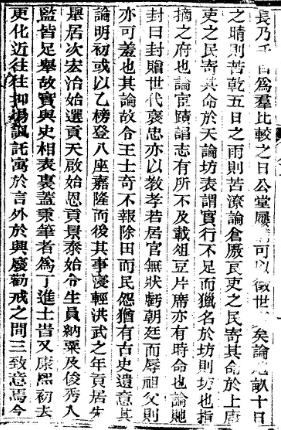 長乃千百為羣比較之日公堂屢可以徵世矣論九畝十日
之晴則苦乾五日之雨則苦潦論倉厫哀吏之民寄其命於上唐
吏之民寄其命於天論坊表謂實行不足而獵名於坊則坊也指
摘之府也論宦蹟謂志有所不及載俎豆片席亦有時命也論馳
封曰封贈世代褒忠亦以敎孝若居官無狀虧朝廷而辱祖父則
亦可羞也其論故令王士竒不報除田而民怨猶有古史遺意其
論明初或以乙榜登八座嘉隆而後其事寖輕洪武之年貢居先
舉居次宏治始選貢天啟始恩貢景泰始令生員納粟及俊秀入
監皆足舉故實與史相表裏蓋秉筆者為丁進士昔又康熙初去
更化近往往抑揚諷託寓於言外於興廢勸戒之間三致意焉今